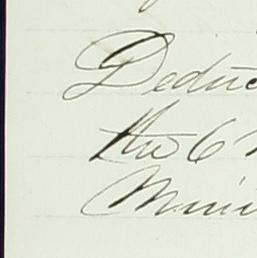 Deduc
the 6
Mini